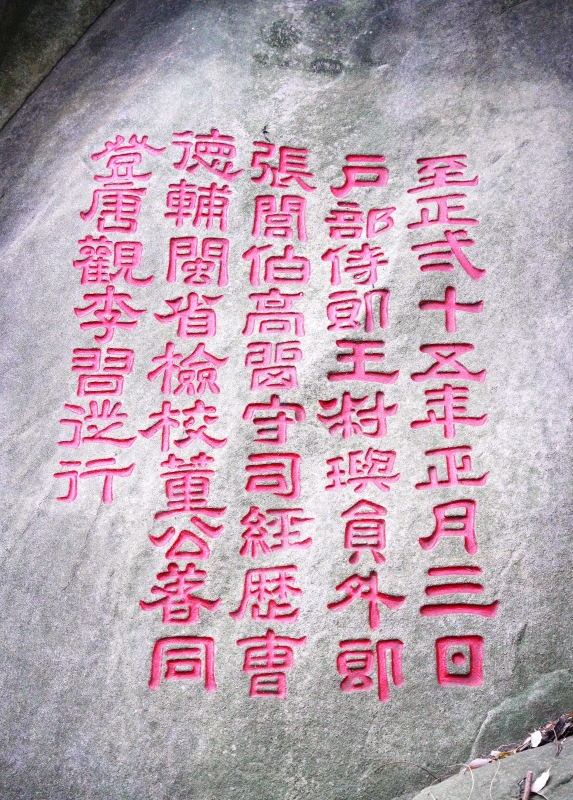 至正弍十五年正月三日
户部侍郎王璵員外郎
張閭伯高留守司經歷曹
德輔閩省檢校董公善同
登唐觀李習從行